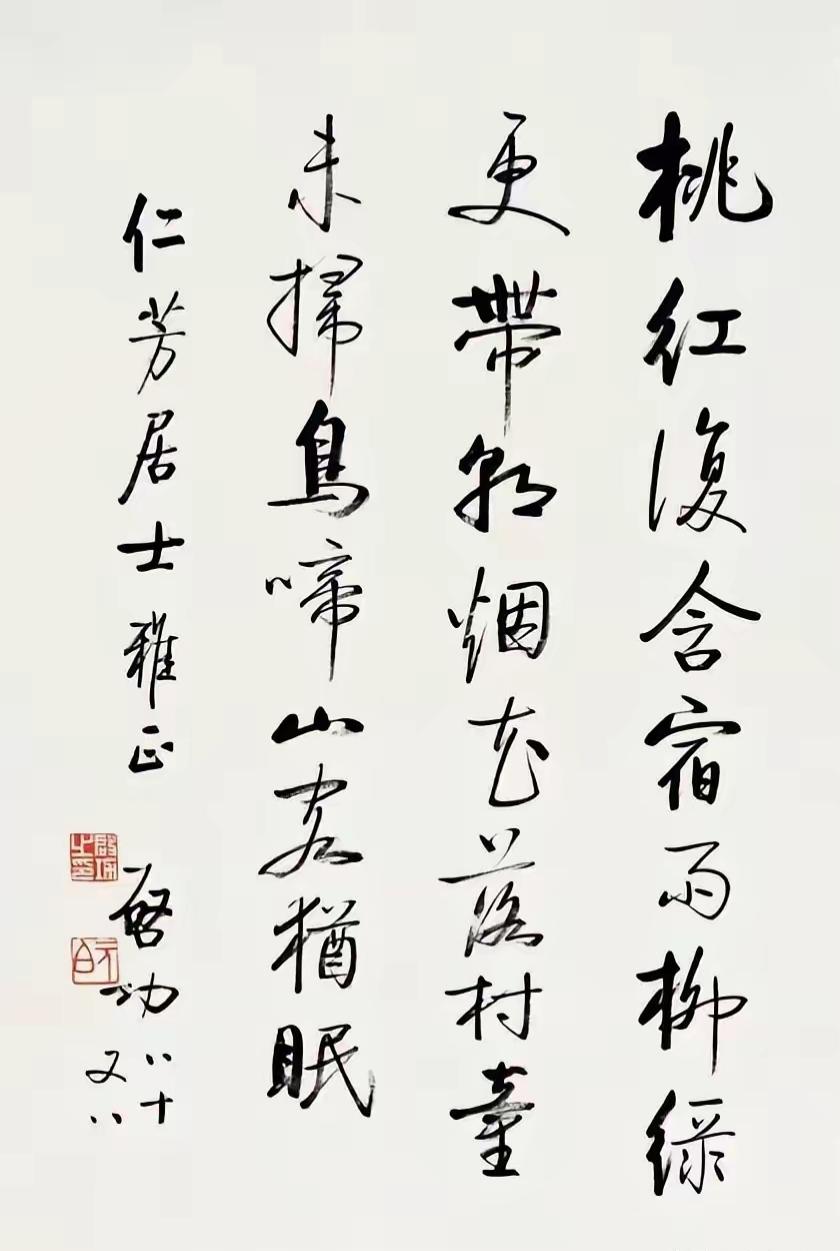 桃紅復含宿雨柳緑
更帶朝烟花落村童
未掃鳥啼山客猶眠
仁芳居士雅正
啓功八十
又八
啟功之印
元白